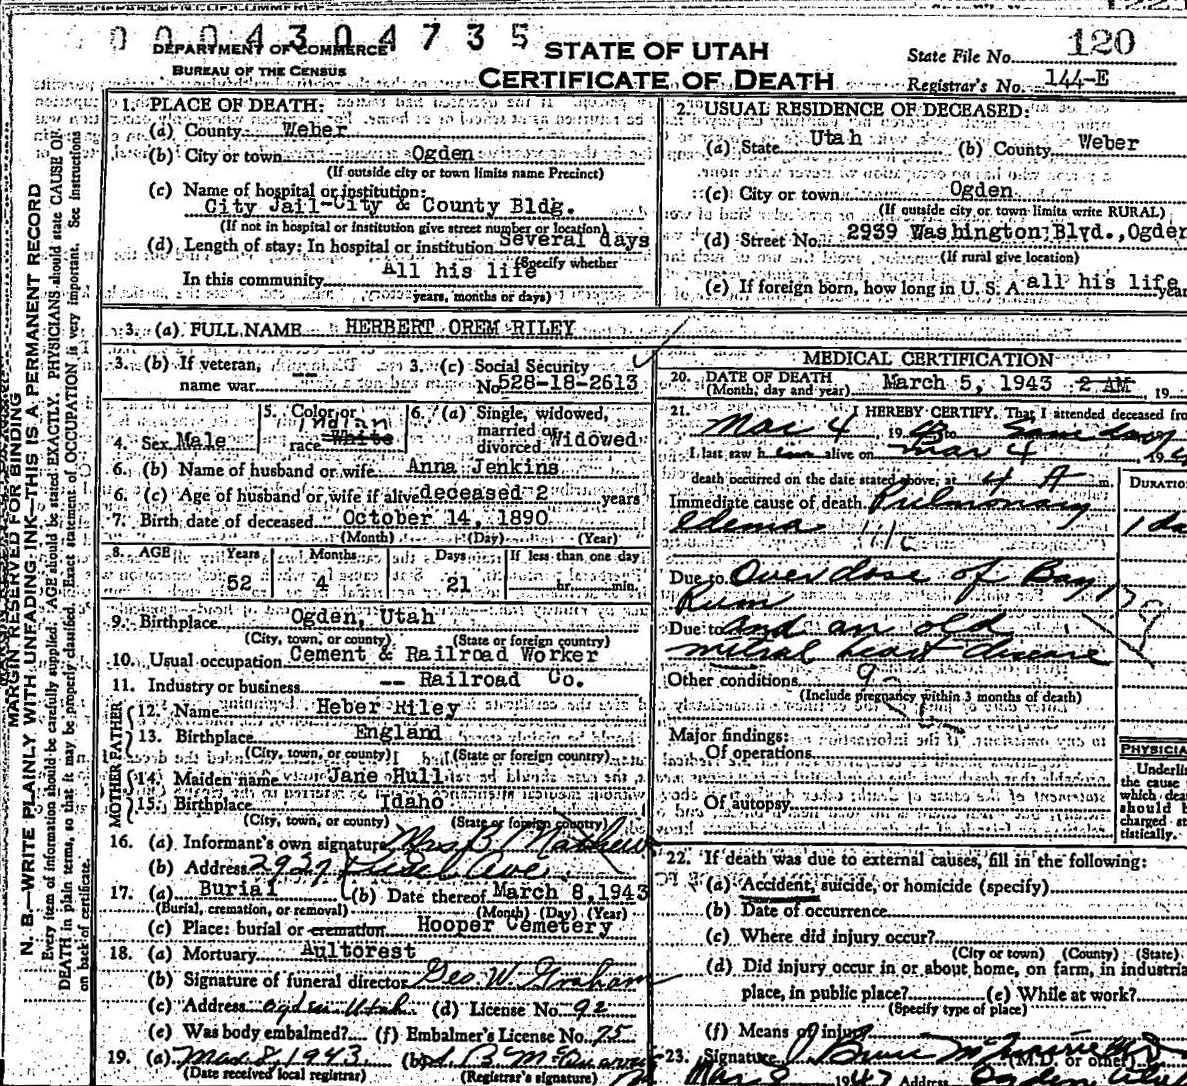 0 0 0 4 3 0 4 7 3 5
DEPARTMENT OF COMMERCE
BUREAU OF THE CENSUS
STATE OF UTAH
CERTIFICATE OF DEATH
State File No. 120
Registrar's No. 144-E
MARGIN RESERVED FOR BINDING
N. B.—WRITE PLAINLY WITH UNFADING INK—THIS IS A PERMANENT RECORD
Every item of information should be carefully supplied. AGE should be stated EXACTLY. PHYSICIANS should state CAUSE OF
DEATH in plain terms, so that it may be properly classified. Exact statement of OCCUPATION is very important. See instructions
on back of certificate.
1. PLACE OF DEATH:
(a) County Weber
(b) City or town Ogden
(If outside city or town limits name Precinct)
(c) Name of hospital or institution:
City Jail-City & County Bldg.
(If not in hospital or institution give street number or location)
(d) Length of stay: In hospital or institution Several days
(Specify whether
In this community All his life
years, months or days)
2. USUAL RESIDENCE OF DECEASED:
(a) State Utah (b) County Weber
(c) City or town Ogden
(If outside city or town limits write RURAL)
(d) Street No. 2939 Washington Blvd., Ogden
(If rural give location)
(e) If foreign born, how long in U. S. A. all his life year
3. (a) FULL NAME HERBERT OREM RILEY
3. (b) If veteran, name war --
3. (c) Social Security No. 528-18-2613
4. Sex Male
5. Color or race Indian White
6. (a) Single, widowed, married or divorced Widowed
6. (b) Name of husband or wife Anna Jenkins
6. (c) Age of husband or wife if alive deceased 2 years
7. Birth date of deceased October 14, 1890
(Month) (Day) (Year)
8. AGE Years Months Days If less than one day
52 4 21 hr. min.
9. Birthplace Ogden, Utah
(City, town, or county) (State or foreign country)
10. Usual occupation Cement & Railroad Worker
11. Industry or business -- Railroad Co.
FATHER
12. Name Heber Riley
13. Birthplace England
(City, town, or county) (State or foreign country)
MOTHER
14. Maiden name Jane Hull
15. Birthplace Idaho
(City, town, or county) (State or foreign country)
16. (a) Informant's own signature Mrs. B.
(b) Address 2937 Ave.
17. (a) Burial (b) Date thereof March 8, 1943
(Burial, cremation, or removal) (Month) (Day) (Year)
(c) Place: burial or cremation Hooper Cemetery
18. (a) Mortuary Aultorest
(b) Signature of funeral director Geo. W. Graham
(c) Address Ogden Utah (d) License No. 92
(e) Was body embalmed? (f) Embalmer's License No. 75
19. (a) Mar 8, 1943 (b)
(Date received local registrar) (Registrar's signature)
MEDICAL CERTIFICATION
20. DATE OF DEATH
(Month, day and year) March 5, 1943 2 AM 19
21. I HEREBY CERTIFY, That I attended deceased fro
Mar 4 1943 to Same day
I last saw h im alive on Mar 4 194
death occurred on the date stated above, at 4 A m.
DURATIO
Immediate cause of death Pulmonary
edema 1 da
111c
Due to Overdose of Bay
Rum
Due to and an old
mitral heart disease
Other conditions
(Include pregnancy within 3 months of death)
Major findings:
Of operations
Of autopsy
PHYSICIA
Underlin
the cause
which dea
should b
charged st
tistically.
22. If death was due to external causes, fill in the following:
(a) Accident, suicide, or homicide (specify)
(b) Date of occurrence
(c) Where did injury occur?
(City or town) (County) (State)
(d) Did injury occur in or about home, on farm, in industria
place, in public place? (e) While at work?
(Specify type of place)
(f) Means of injury
23. Signature (M.D. or other)
Mar 8 1943 Address Ogden